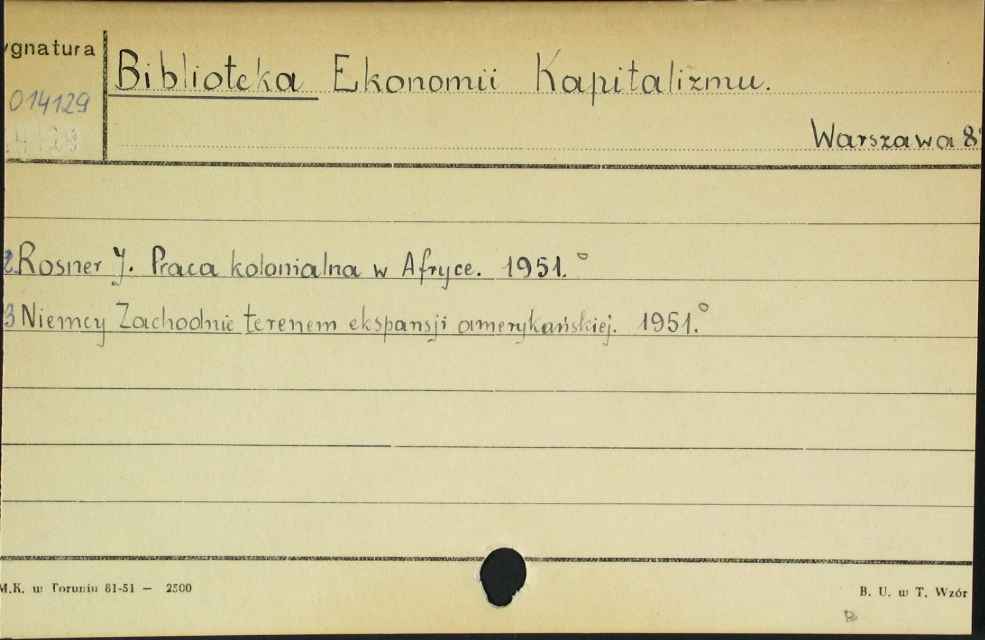 ygnatura
Biblioteka Ekonomii Kapitalizmu.
014129
Warszawa 8°
2 Rosner J. Praca kolonialna w Afryce. 1951.°
3 Niemcy Zachodnie terenem ekspansji amerykańskiej. 1951.°
M.K. w Toruniu 81-51 — 2500
B. U. w T. Wzór
B